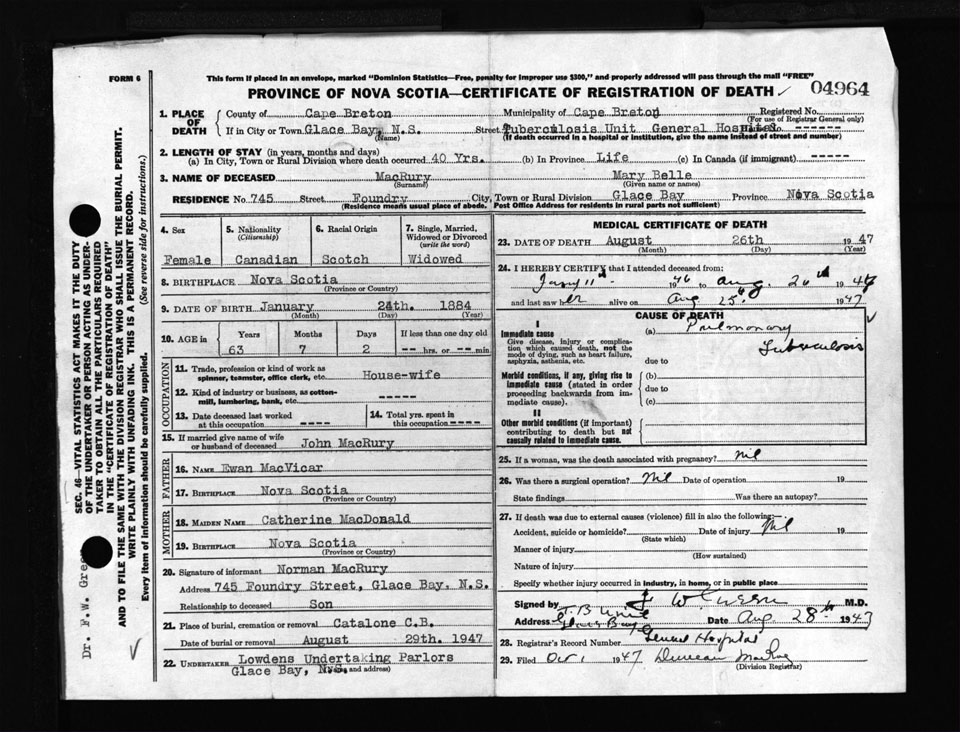 FORM 6
This form if placed in an envelope, marked "Dominion Statistics—Free, penalty for improper use $300," and properly addressed will pass through the mail "FREE"
PROVINCE OF NOVA SCOTIA—CERTIFICATE OF REGISTRATION OF DEATH ✓ 04964
1. PLACE OF DEATH
County of Cape Breton Municipality of Cape Breton Registered No.
(For use of Registrar General only)
If in City or Town Glace Bay, N.S. Street Tuberculosis Unit General Hospital No. -----
(Name) (If death occurred in a hospital or institution, give the name instead of street and number)
2. LENGTH OF STAY (in years, months and days)
(a) In City, Town or Rural Division where death occurred 40 Yrs. (b) In Province Life (c) In Canada (if immigrant) -----
3. NAME OF DECEASED MacRury Mary Belle
(Surname) (Given name or names)
RESIDENCE No. 745 Street Foundry City, Town or Rural Division Glace Bay Province Nova Scotia
(Residence means usual place of abode. Post Office Address for residents in rural parts not sufficient)
4. Sex 5. Nationality (Citizenship) 6. Racial Origin 7. Single, Married, Widowed or Divorced (write the word)
Female Canadian Scotch Widowed
8. BIRTHPLACE Nova Scotia
(Province or Country)
9. DATE OF BIRTH January 24th. 1884
(Month) (Day) (Year)
10. AGE in Years Months Days If less than one day old
63 7 2 -- hrs. or -- min
OCCUPATION
11. Trade, profession or kind of work as spinner, teamster, office clerk, etc. House-wife
12. Kind of industry or business, as cotton-mill, lumbering, bank, etc. -----
13. Date deceased last worked at this occupation ----
14. Total yrs. spent in this occupation ----
15. If married give name of wife or husband of deceased John MacRury
FATHER
16. NAME Ewan MacVicar
17. BIRTHPLACE Nova Scotia
(Province or Country)
MOTHER
18. MAIDEN NAME Catherine MacDonald
19. BIRTHPLACE Nova Scotia
(Province or Country)
20. Signature of informant Norman MacRury
Address 745 Foundry Street, Glace Bay, N.S.
Relationship to deceased Son
21. Place of burial, cremation or removal Catalone C.B.
Date of burial or removal August 29th. 1947
22. UNDERTAKER Lowdens Undertaking Parlors
Glace Bay, N.S.
(Name and address)
MEDICAL CERTIFICATE OF DEATH
23. DATE OF DEATH August 26th 1947
(Month) (Day) (Year)
24. I HEREBY CERTIFY that I attended deceased from:
Jany 11th 1946 to Aug 26th 1947
and last saw her alive on Aug 25th 1947
CAUSE OF DEATH
I
Immediate cause
Give disease, injury or complication which caused death, not the mode of dying, such as heart failure, asphyxia, asthenia, etc.
(a) Pulmonary Tuberculosis
due to
Morbid conditions, if any, giving rise to immediate cause (stated in order proceeding backwards from immediate cause).
(b)
due to
(c)
II
Other morbid conditions (if important) contributing to death but not causally related to immediate cause.
25. If a woman, was the death associated with pregnancy? Nil
26. Was there a surgical operation? Nil Date of operation 19
State findings Was there an autopsy?
27. If death was due to external causes (violence) fill in also the following: Nil
Accident, suicide or homicide? Date of injury 19
(State which)
Manner of injury
(How sustained)
Nature of injury
Specify whether injury occurred in industry, in home, or in public place
Signed by M.D.
Address T.B. Unit Glace Bay General Hospital Date Aug. 28th 1947
28. Registrar's Record Number
29. Filed Oct 1 1947 Duncan MacRae
(Division Registrar)
SEC. 46—VITAL STATISTICS ACT MAKES IT THE DUTY
OF THE UNDERTAKER OR PERSON ACTING AS UNDER-
TAKER TO OBTAIN ALL THE PARTICULARS REQUIRED
IN THE "CERTIFICATE OF REGISTRATION OF DEATH"
AND TO FILE THE SAME WITH THE DIVISION REGISTRAR WHO SHALL ISSUE THE BURIAL PERMIT.
WRITE PLAINLY WITH UNFADING INK. THIS IS A PERMANENT RECORD.
Every item of information should be carefully supplied. (See reverse side for instructions.)
Dr. F.W. Gree